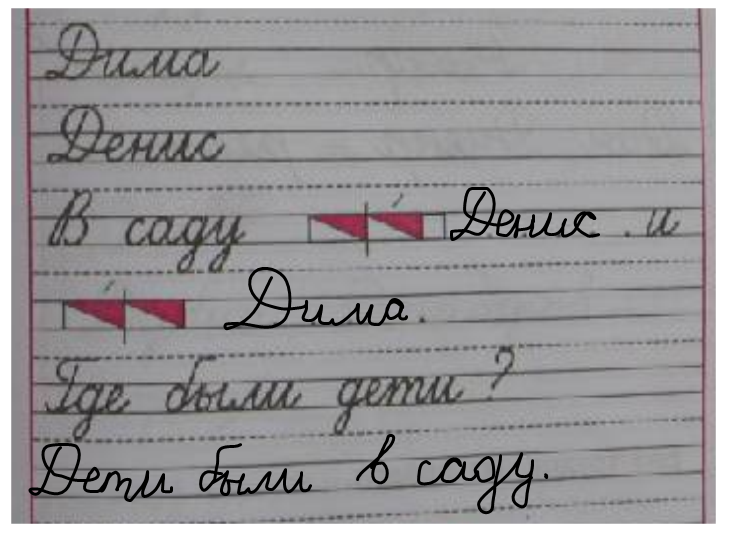 Дима
Денис
В саду Денис и
Дима.
Где были дети?
Дети были в саду.